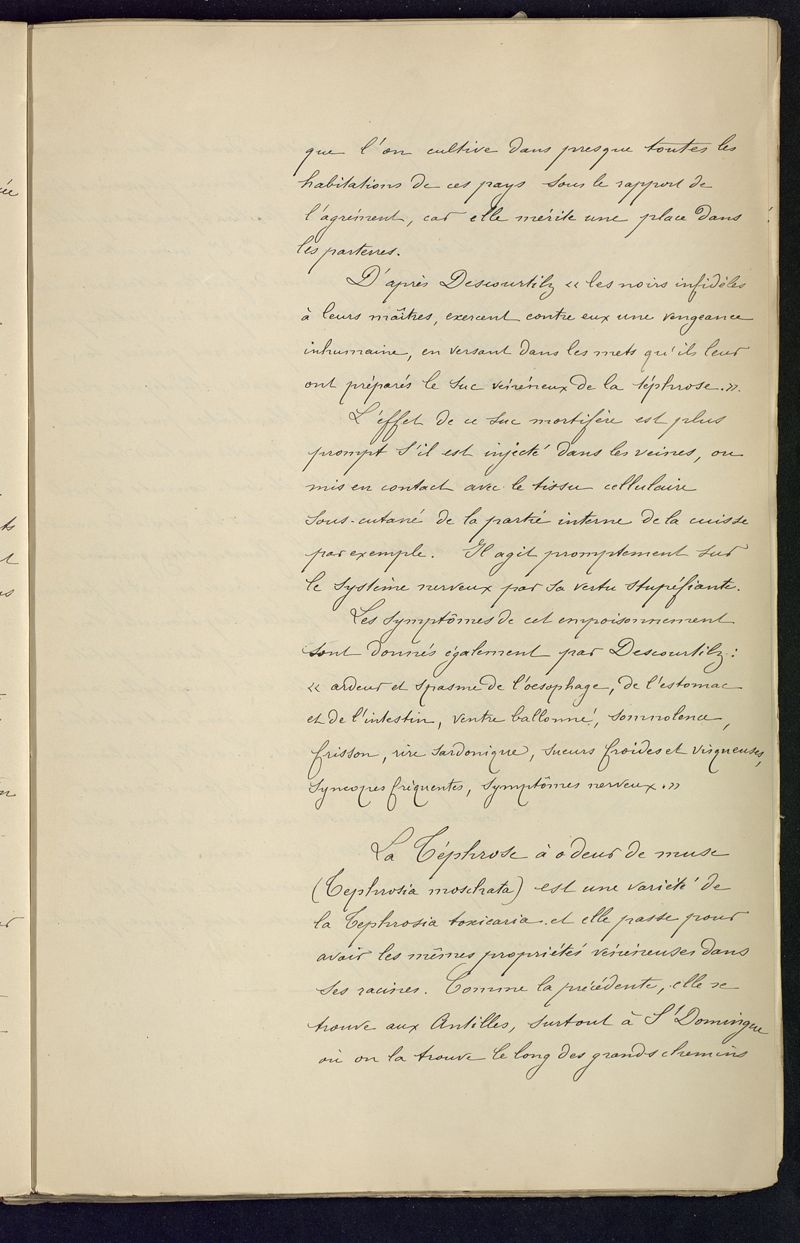 que l'on cultive dans presque toutes les
habitations de ces pays sous le rapport de
l'agrément, car elle mérite une place dans
les parterres.
D'après Descourtilz « les noirs infidèles
à leurs maîtres, exercent contre eux une vengeance
inhumaine, en versant dans les mets qu'ils leur
ont préparés le suc vénéneux de la téphrose.».
L'effet de ce suc mortifère est plus
prompt s'il est injecté dans les veines, ou
mis en contact avec le tissu cellulaire
sous-cutané de la partie interne de la cuisse
par exemple. Il agit promptement sur
le système nerveux par sa vertu stupéfiante.
Les symptômes de cet empoisonnement
sont donnés également par Descourtilz :
« ardeur et spasme de l'oesophage, de l'estomac
et de l'intestin, ventre ballonné, somnolence,
frisson, rire sardonique, sueurs froides et visqueuses,
syncopes fréquentes, symptômes nerveux.»
La Téphrose à odeur de musc
(Tephrosia moschata) est une variété de
la Tephrosia toxicaria et elle passe pour
avoir les mêmes propriétés vénéneuses dans
ses racines. Comme la précédente, elle se
trouve aux Antilles, surtout à St Domingue
où on la trouve le long des grands chemins